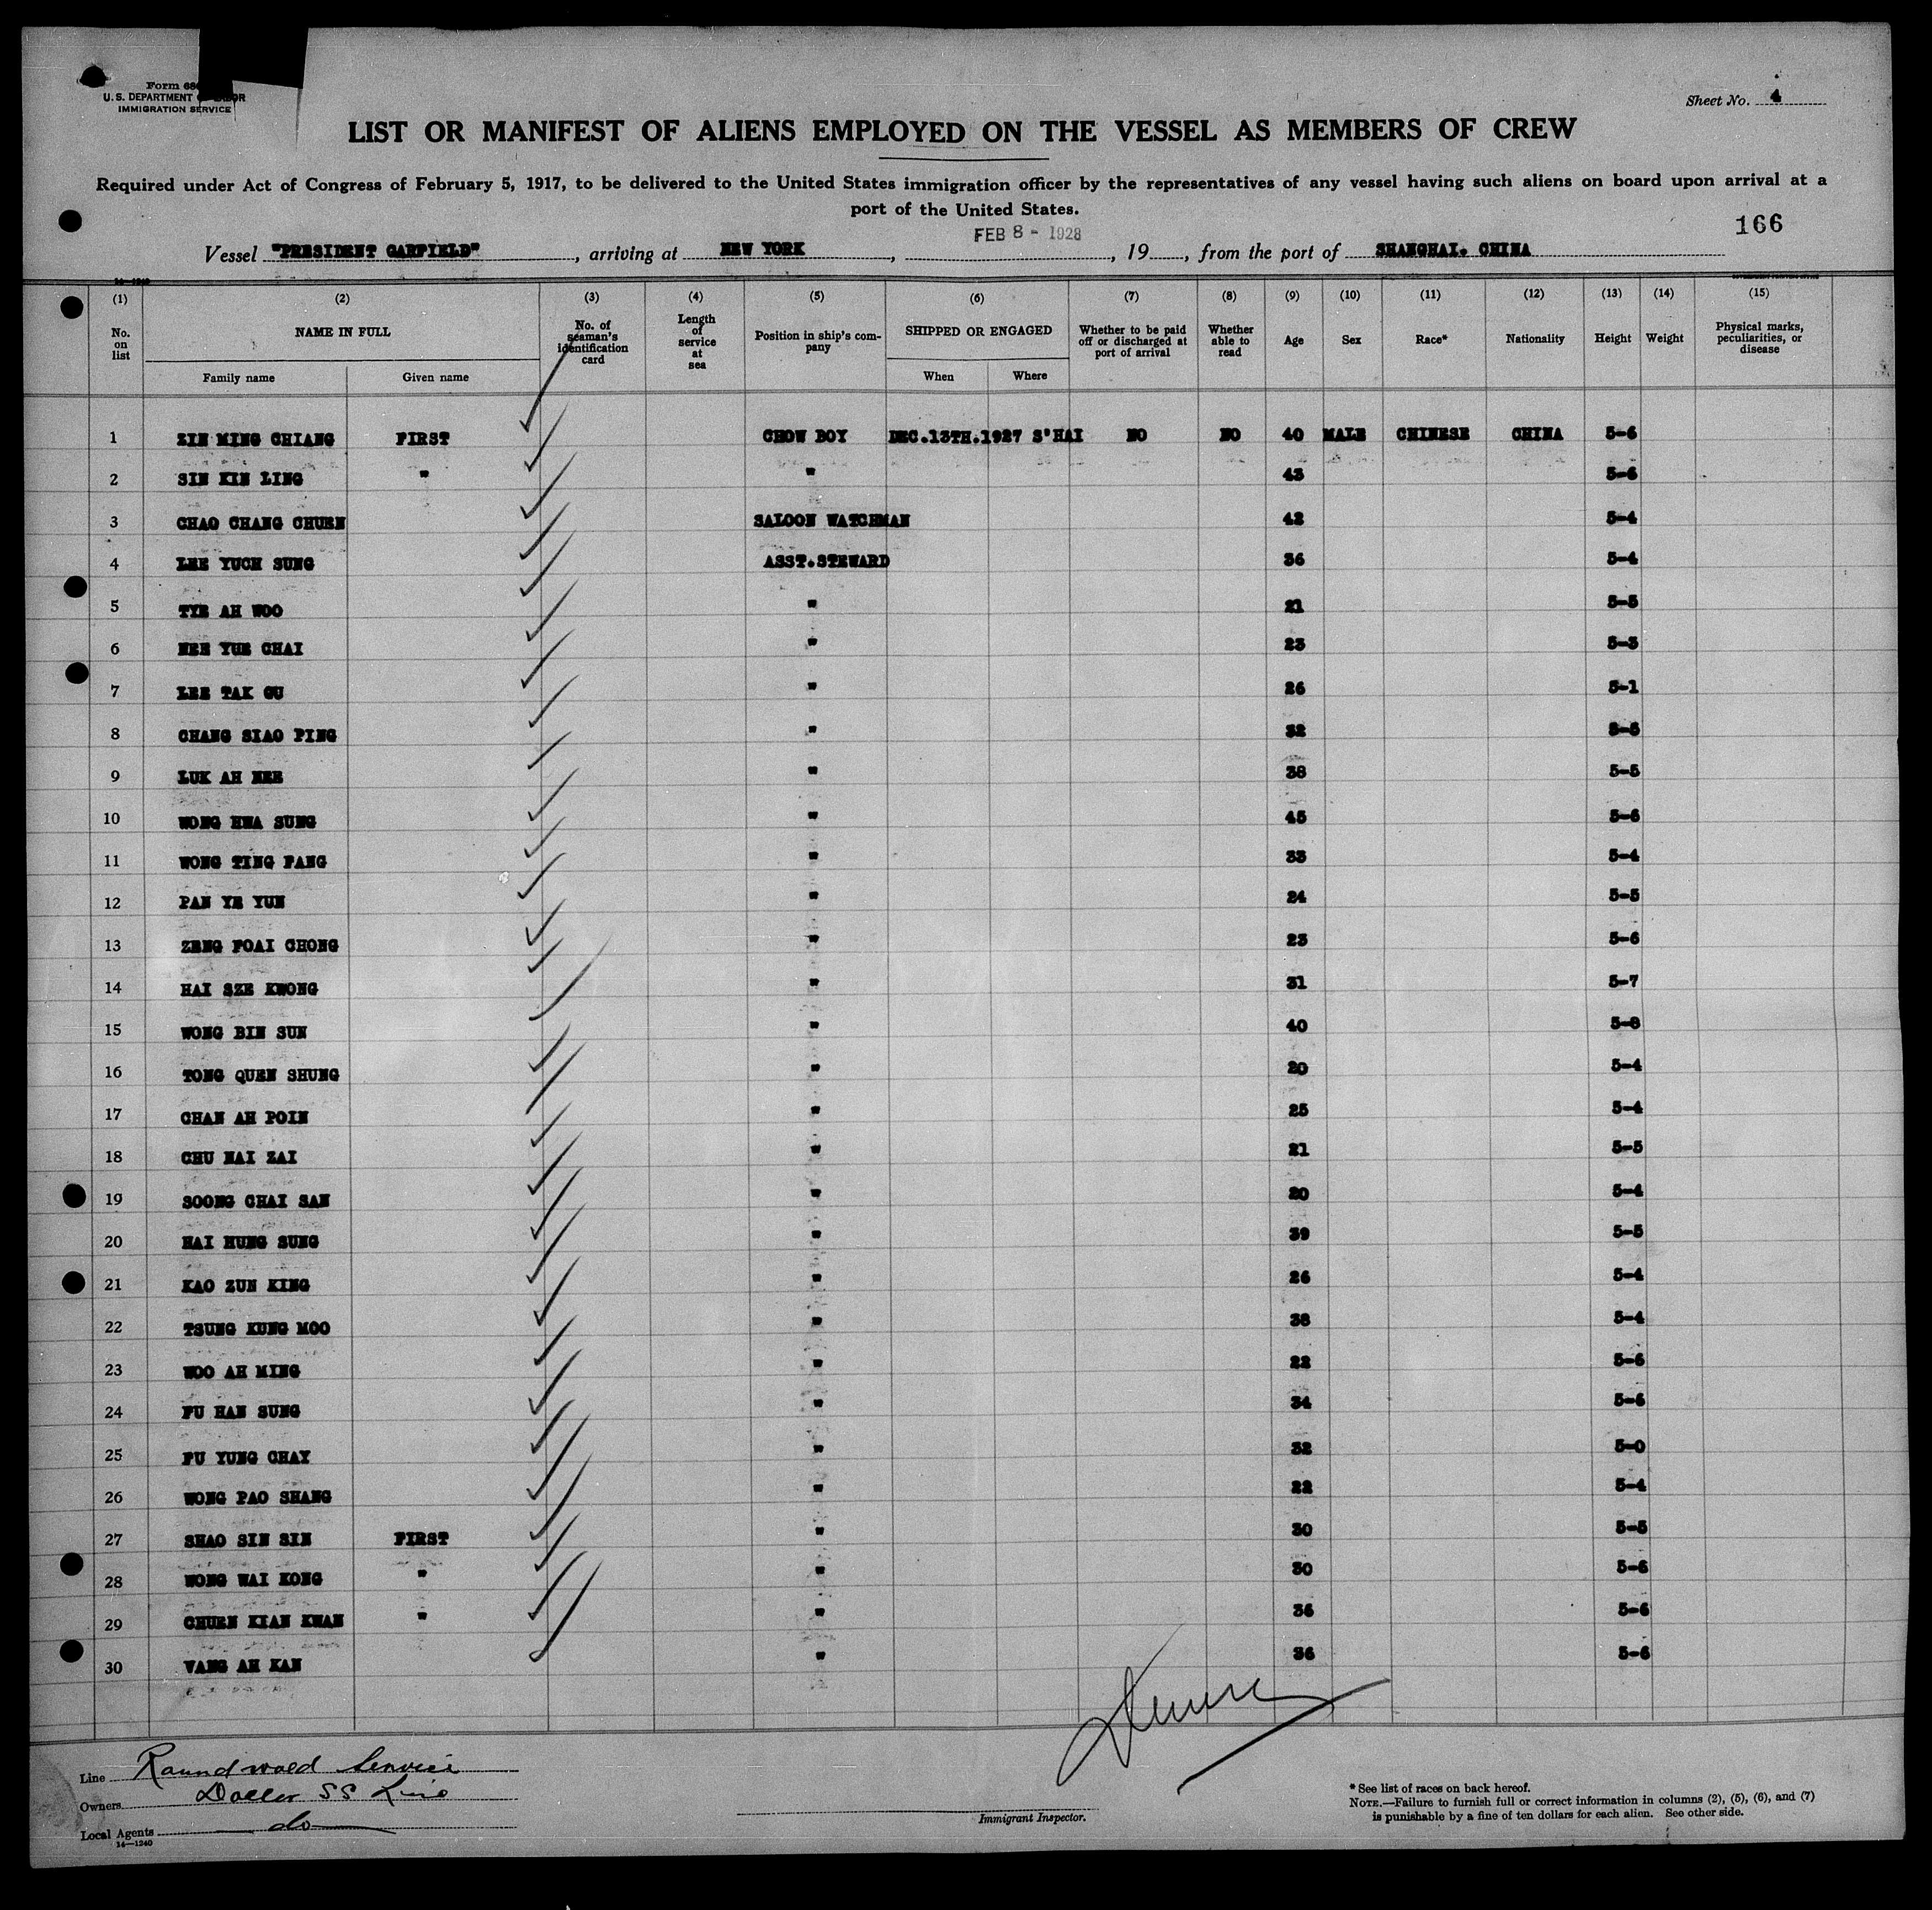 Form 68
U. S. DEPARTMENT OF LABOR
IMMIGRATION SERVICE
Sheet No. 4
LIST OR MANIFEST OF ALIENS EMPLOYED ON THE VESSEL AS MEMBERS OF CREW
Required under Act of Congress of February 5, 1917, to be delivered to the United States immigration officer by the representatives of any vessel having such aliens on board upon arrival at a
port of the United States.
166
FEB 8 - 1928
Vessel "PRESIDENT GARFIELD", arriving at NEW YORK, , 19 , from the port of SHANGHAI. CHINA
(1) (2) (3) (4) (5) (6) (7) (8) (9) (10) (11) (12) (13) (14) (15)
No. on list NAME IN FULL No. of seaman's identification card Length of service at sea Position in ship's company SHIPPED OR ENGAGED Whether to be paid off or discharged at port of arrival Whether able to read Age Sex Race* Nationality Height Weight Physical marks, peculiarities, or disease
Family name Given name When Where
1 ZIN MING CHIANG FIRST CHOW BOY DEC.13TH.1927 S'HAI NO NO 40 MALE CHINESE CHINA 5-6
2 SIN KIN LING " " 43 5-6
3 CHAO CHANG CHUEN SALOON WATCHMAN 42 5-4
4 LEE YUCH SUNG ASST.STEWARD 36 5-4
5 TYE AH WOO " 21 5-5
6 NEE YUE CHAI " 23 5-3
7 LEE TAK GU " 26 5-1
8 CHANG SIAO PING " 32 5-5
9 LUK AH NEE " 38 5-5
10 WONG HWA SUNG " 45 5-6
11 WONG TING FANG " 33 5-4
12 PAN YE YUN " 24 5-5
13 ZENG FOAI CHONG " 23 5-6
14 HAI SZE KWONG " 31 5-7
15 WONG BIN SUN " 40 5-8
16 TONG QUEN SHUNG " 20 5-4
17 CHAN AH POIN " 25 5-4
18 CHU NAI ZAI " 21 5-5
19 SOONG CHAI SAN " 20 5-4
20 HAI HUNG SUNG " 39 5-5
21 KAO ZUN KING " 26 5-4
22 TSUNG KUNG MOO " 38 5-4
23 WOO AH MING " 22 5-6
24 FU HAN SUNG " 34 5-6
25 FU YUNG CHAY " 32 5-0
26 WONG PAO SHANG " 22 5-4
27 SHAO SIN SIN FIRST " 30 5-5
28 WONG WAI KONG " " 30 5-6
29 CHUEN KIAN KWAN " " 36 5-6
30 VANG AH KAN " 36 5-6
Line Round world Service
Owners Dollar SS Line
Local Agents do
14—1240
Immigrant Inspector.
* See list of races on back hereof.
NOTE.—Failure to furnish full or correct information in columns (2), (5), (6), and (7)
is punishable by a fine of ten dollars for each alien. See other side.